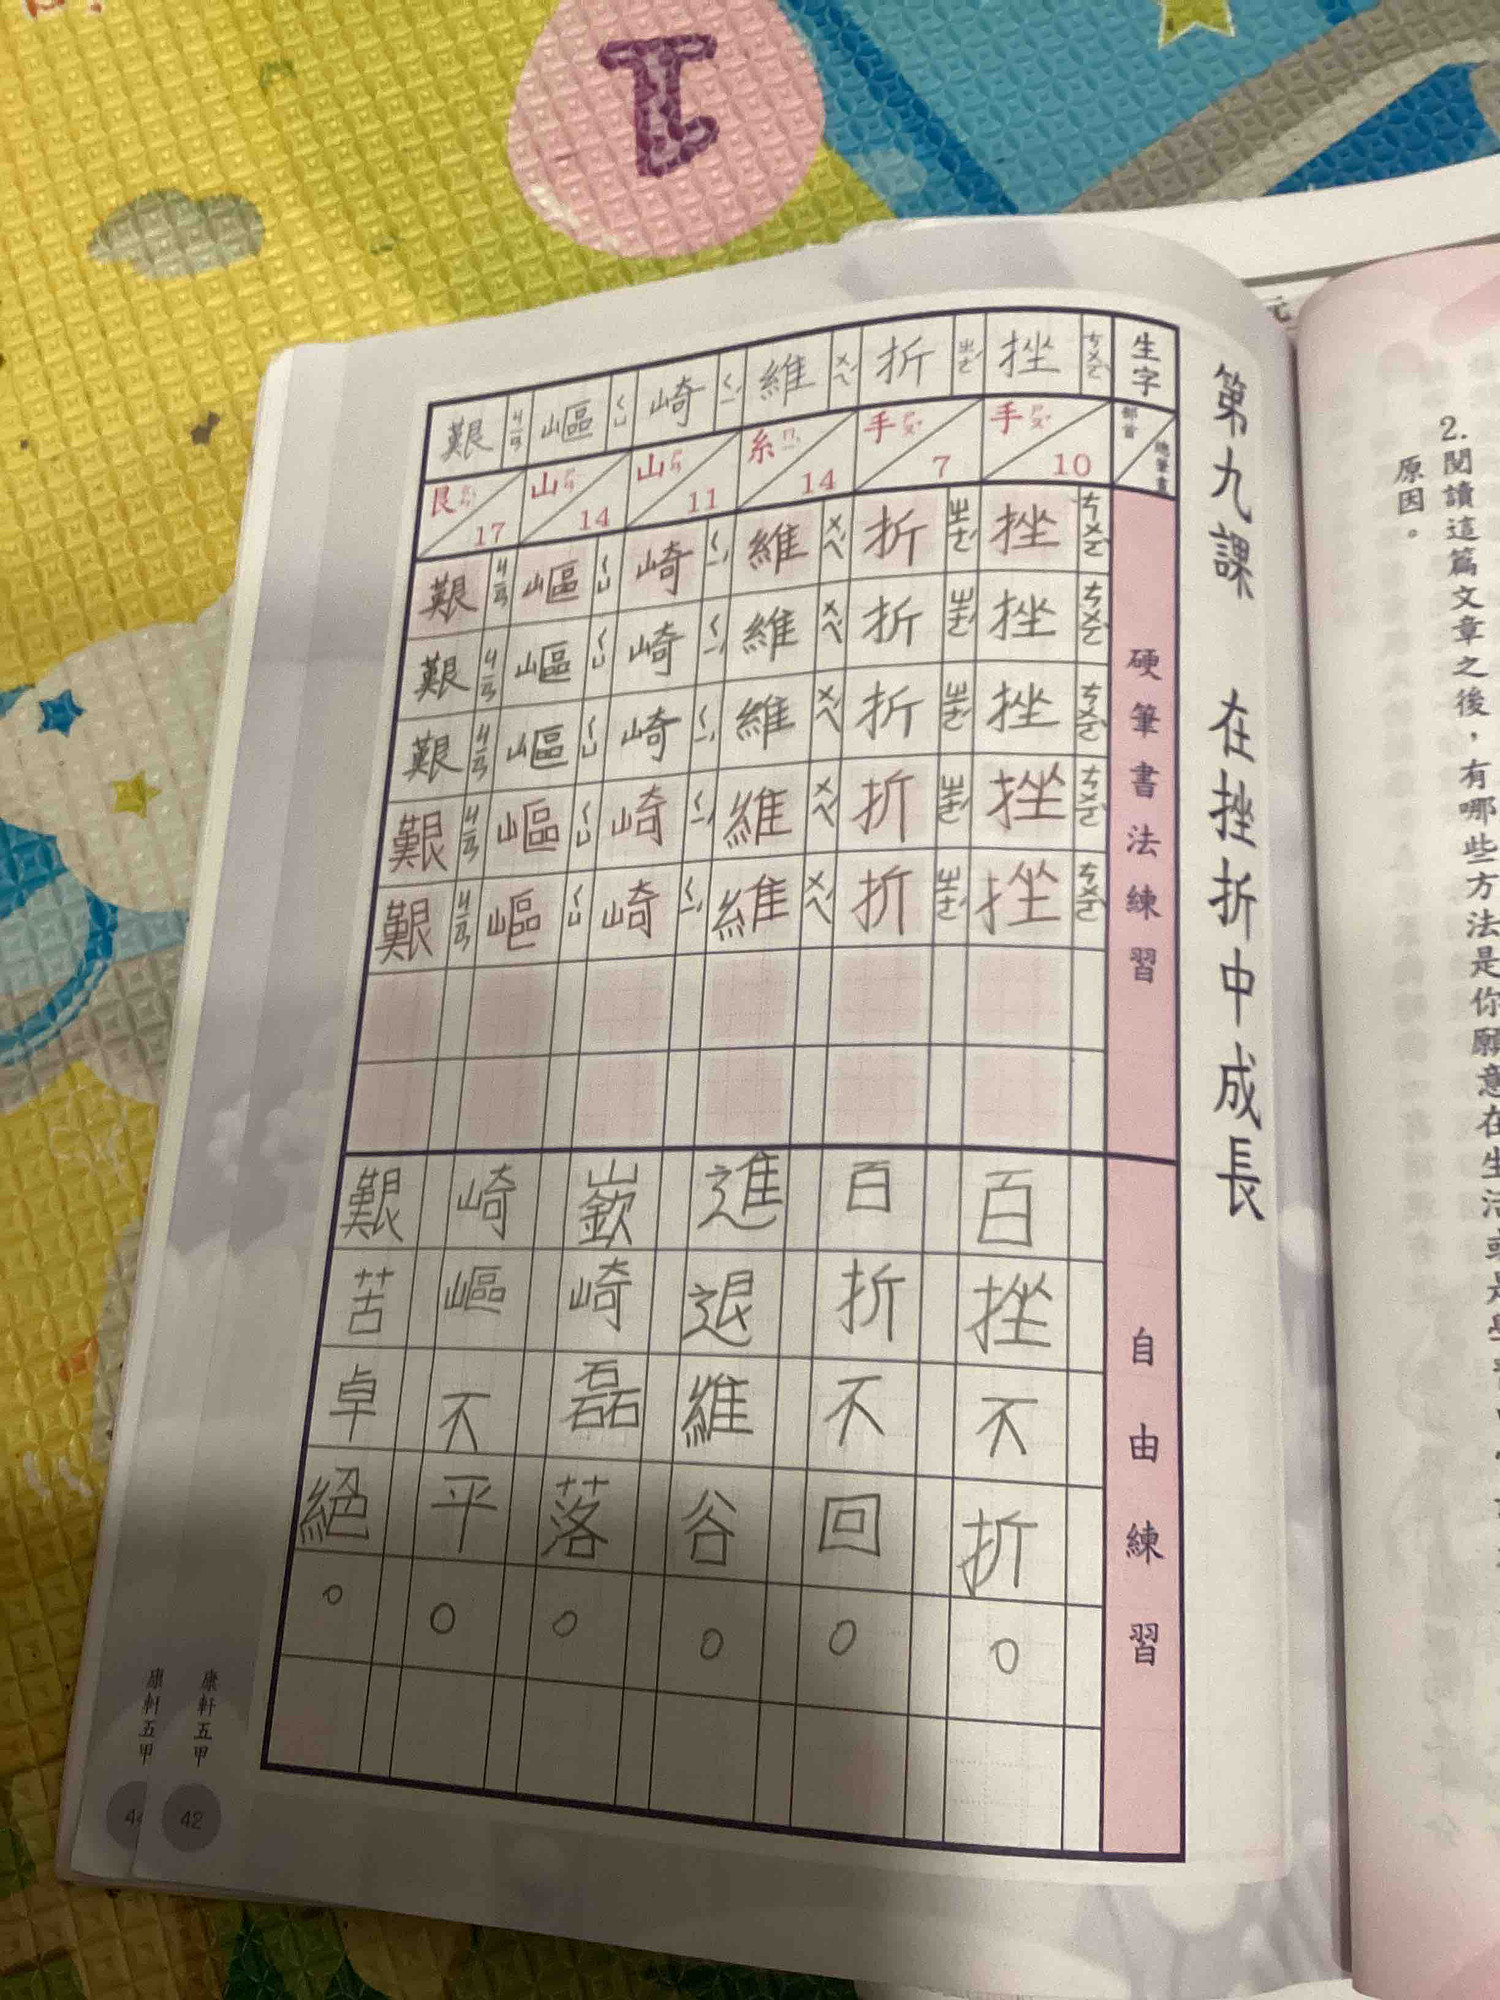 第九課 在挫折中成長
生字 部首 總筆畫 硬筆書法練習 自由練習
挫 ㄘㄨㄛˋ 手 ㄕㄡˇ 10 挫 ㄘㄨㄛˋ 挫 ㄘㄨㄛˋ 挫 ㄘㄨㄛˋ 挫 ㄘㄨㄛˋ 挫 ㄘㄨㄛˋ 百挫不折。
折 ㄓㄜˊ 手 ㄕㄡˇ 7 折 ㄓㄜˊ 折 ㄓㄜˊ 折 ㄓㄜˊ 折 ㄓㄜˊ 折 ㄓㄜˊ 百折不回。
維 ㄨㄟˊ 糸 ㄇㄧˋ 14 維 ㄨㄟˊ 維 ㄨㄟˊ 維 ㄨㄟˊ 維 ㄨㄟˊ 維 ㄨㄟˊ 進退維谷。
崎 ㄑㄧˊ 山 ㄕㄢ 11 崎 ㄑㄧˊ 崎 ㄑㄧˊ 崎 ㄑㄧˊ 崎 ㄑㄧˊ 崎 ㄑㄧˊ 嶔崎磊落。
嶇 ㄑㄩ 山 ㄕㄢ 14 嶇 ㄑㄩ 嶇 ㄑㄩ 嶇 ㄑㄩ 嶇 ㄑㄩ 嶇 ㄑㄩ 崎嶇不平。
艱 ㄐㄧㄢ 艮 ㄍㄣˋ 17 艱 ㄐㄧㄢ 艱 ㄐㄧㄢ 艱 ㄐㄧㄢ 艱 ㄐㄧㄢ 艱 ㄐㄧㄢ 艱苦卓絕。
康軒五甲 42
康軒五甲
元
2.閱讀這篇文章之後，有哪些方法是你願意在生活或是學
原因。